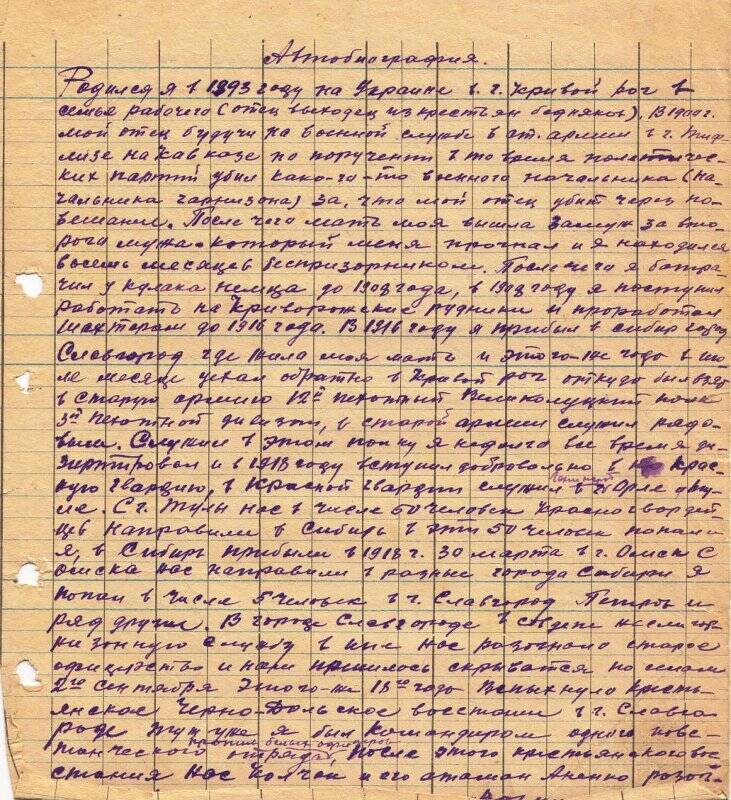 Автобиография.
Родился я в 1893 году на Украине в. г. Кривой рог в
семье рабочего (отец выходец из крестьян бедняков). В 1900 г.
мой отец будучи на военной службе в ст. армии в г. Тиф-
лизе на Кавказе по поручении в то время политичес-
ких партий убил како-го-то военного начальника (на-
чальника гарнизона) за, что мой отец убит через по-
вешание. После чего мать моя вышла замуж за вто-
рого мужа который меня прогнал и я находился
восемь месяцев беспризорником. После чего я батра-
чил у кулака немца до 1908 года, в 1908 году я поступил
работать на Криворожские рудники и проработал
шахтером до 1916 года. В 1916 году я прибыл в сибир город
Славгород где жила моя мать и этого-же года в ию-
ле месяце уехал обратно в Кривой рог откудо был взят
в старую армию 12й пехотный Великолуцкий полк
3й пехотной дивизии, в старой армии служил рядо-
вым. Служил в этом полку я недолго все время де-
зиртировал и в 1918 году вступил добровольно в Крас-
ную гвардию, в Красной гвардии служил в г. Орле
ле. С г. Тулы нас в числе 50 человек Красногвардей-
цев направили в Сибирь в эти 50 человек попал и
я, в Сибирь прибыли в 1918 г. 30 марта в г. Омск С
омска нас направили в разные города Сибири Я
попал в числе 5 человек в г. Славгород и
ряд других. В городе Славгороде в Совдепе несли гар-
низонную службу в нас разогнало старое
офицерство и нам пришлось скрыватся по селам
2го Сентября этого-же 18го года Вспыхнуло Кресть-
янское Черно-Дольское восстание в г. Славго-
роде тут уже я был Командиром одного повс-
танческого отряда против белых офицеров, после этого крестьянского вос-
стания нас Колчак и его атаман Аненко разог-